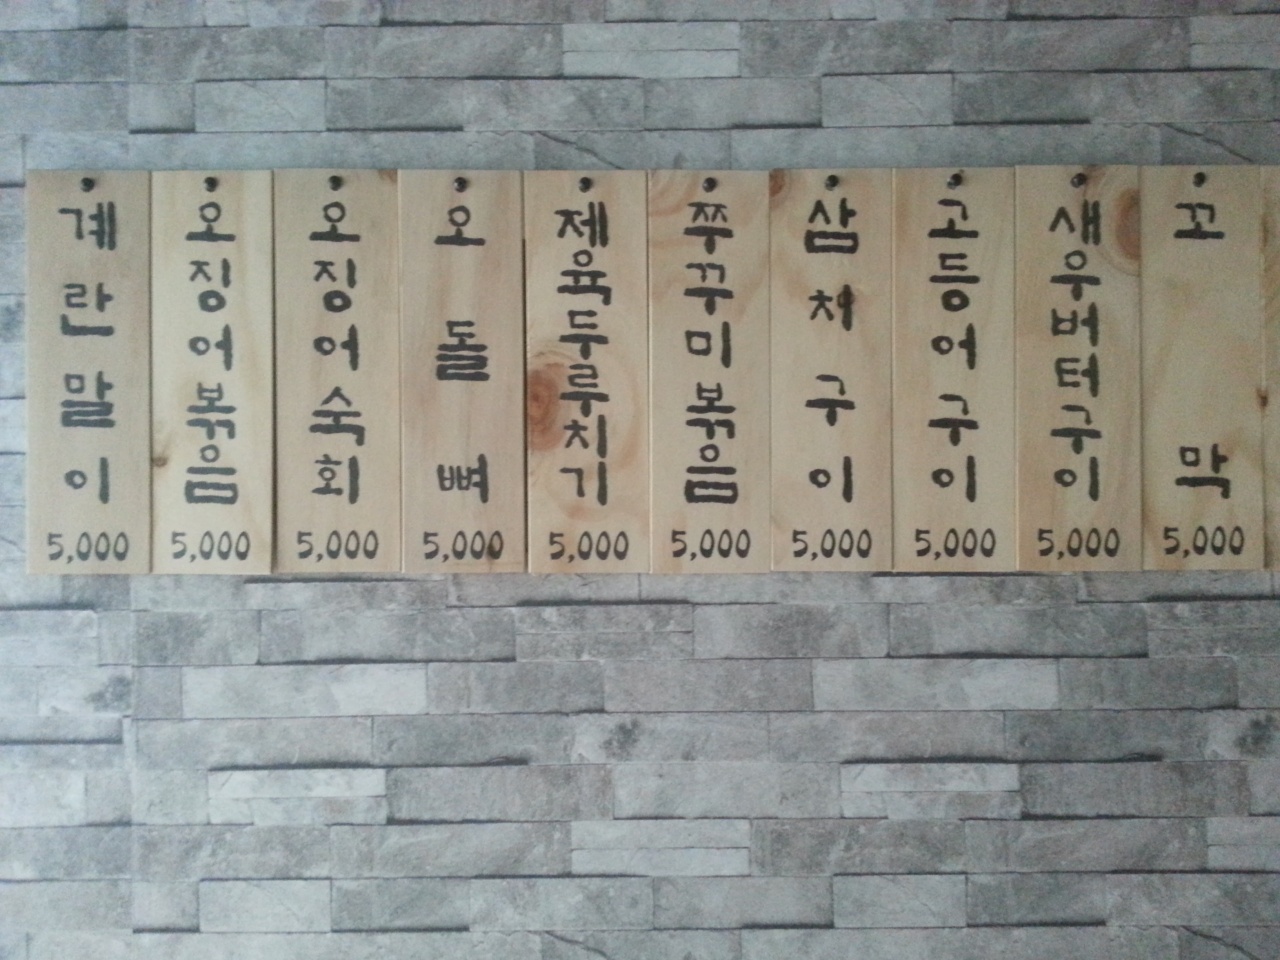 계란말이
5,000
오징어볶음
5,000
오징어숙회
5,000
오돌뼈
5,000
제육두루치기
5,000
쭈꾸미볶음
5,000
삼치구이
5,000
고등어구이
5,000
새우버터구이
5,000
꼬막
5,000